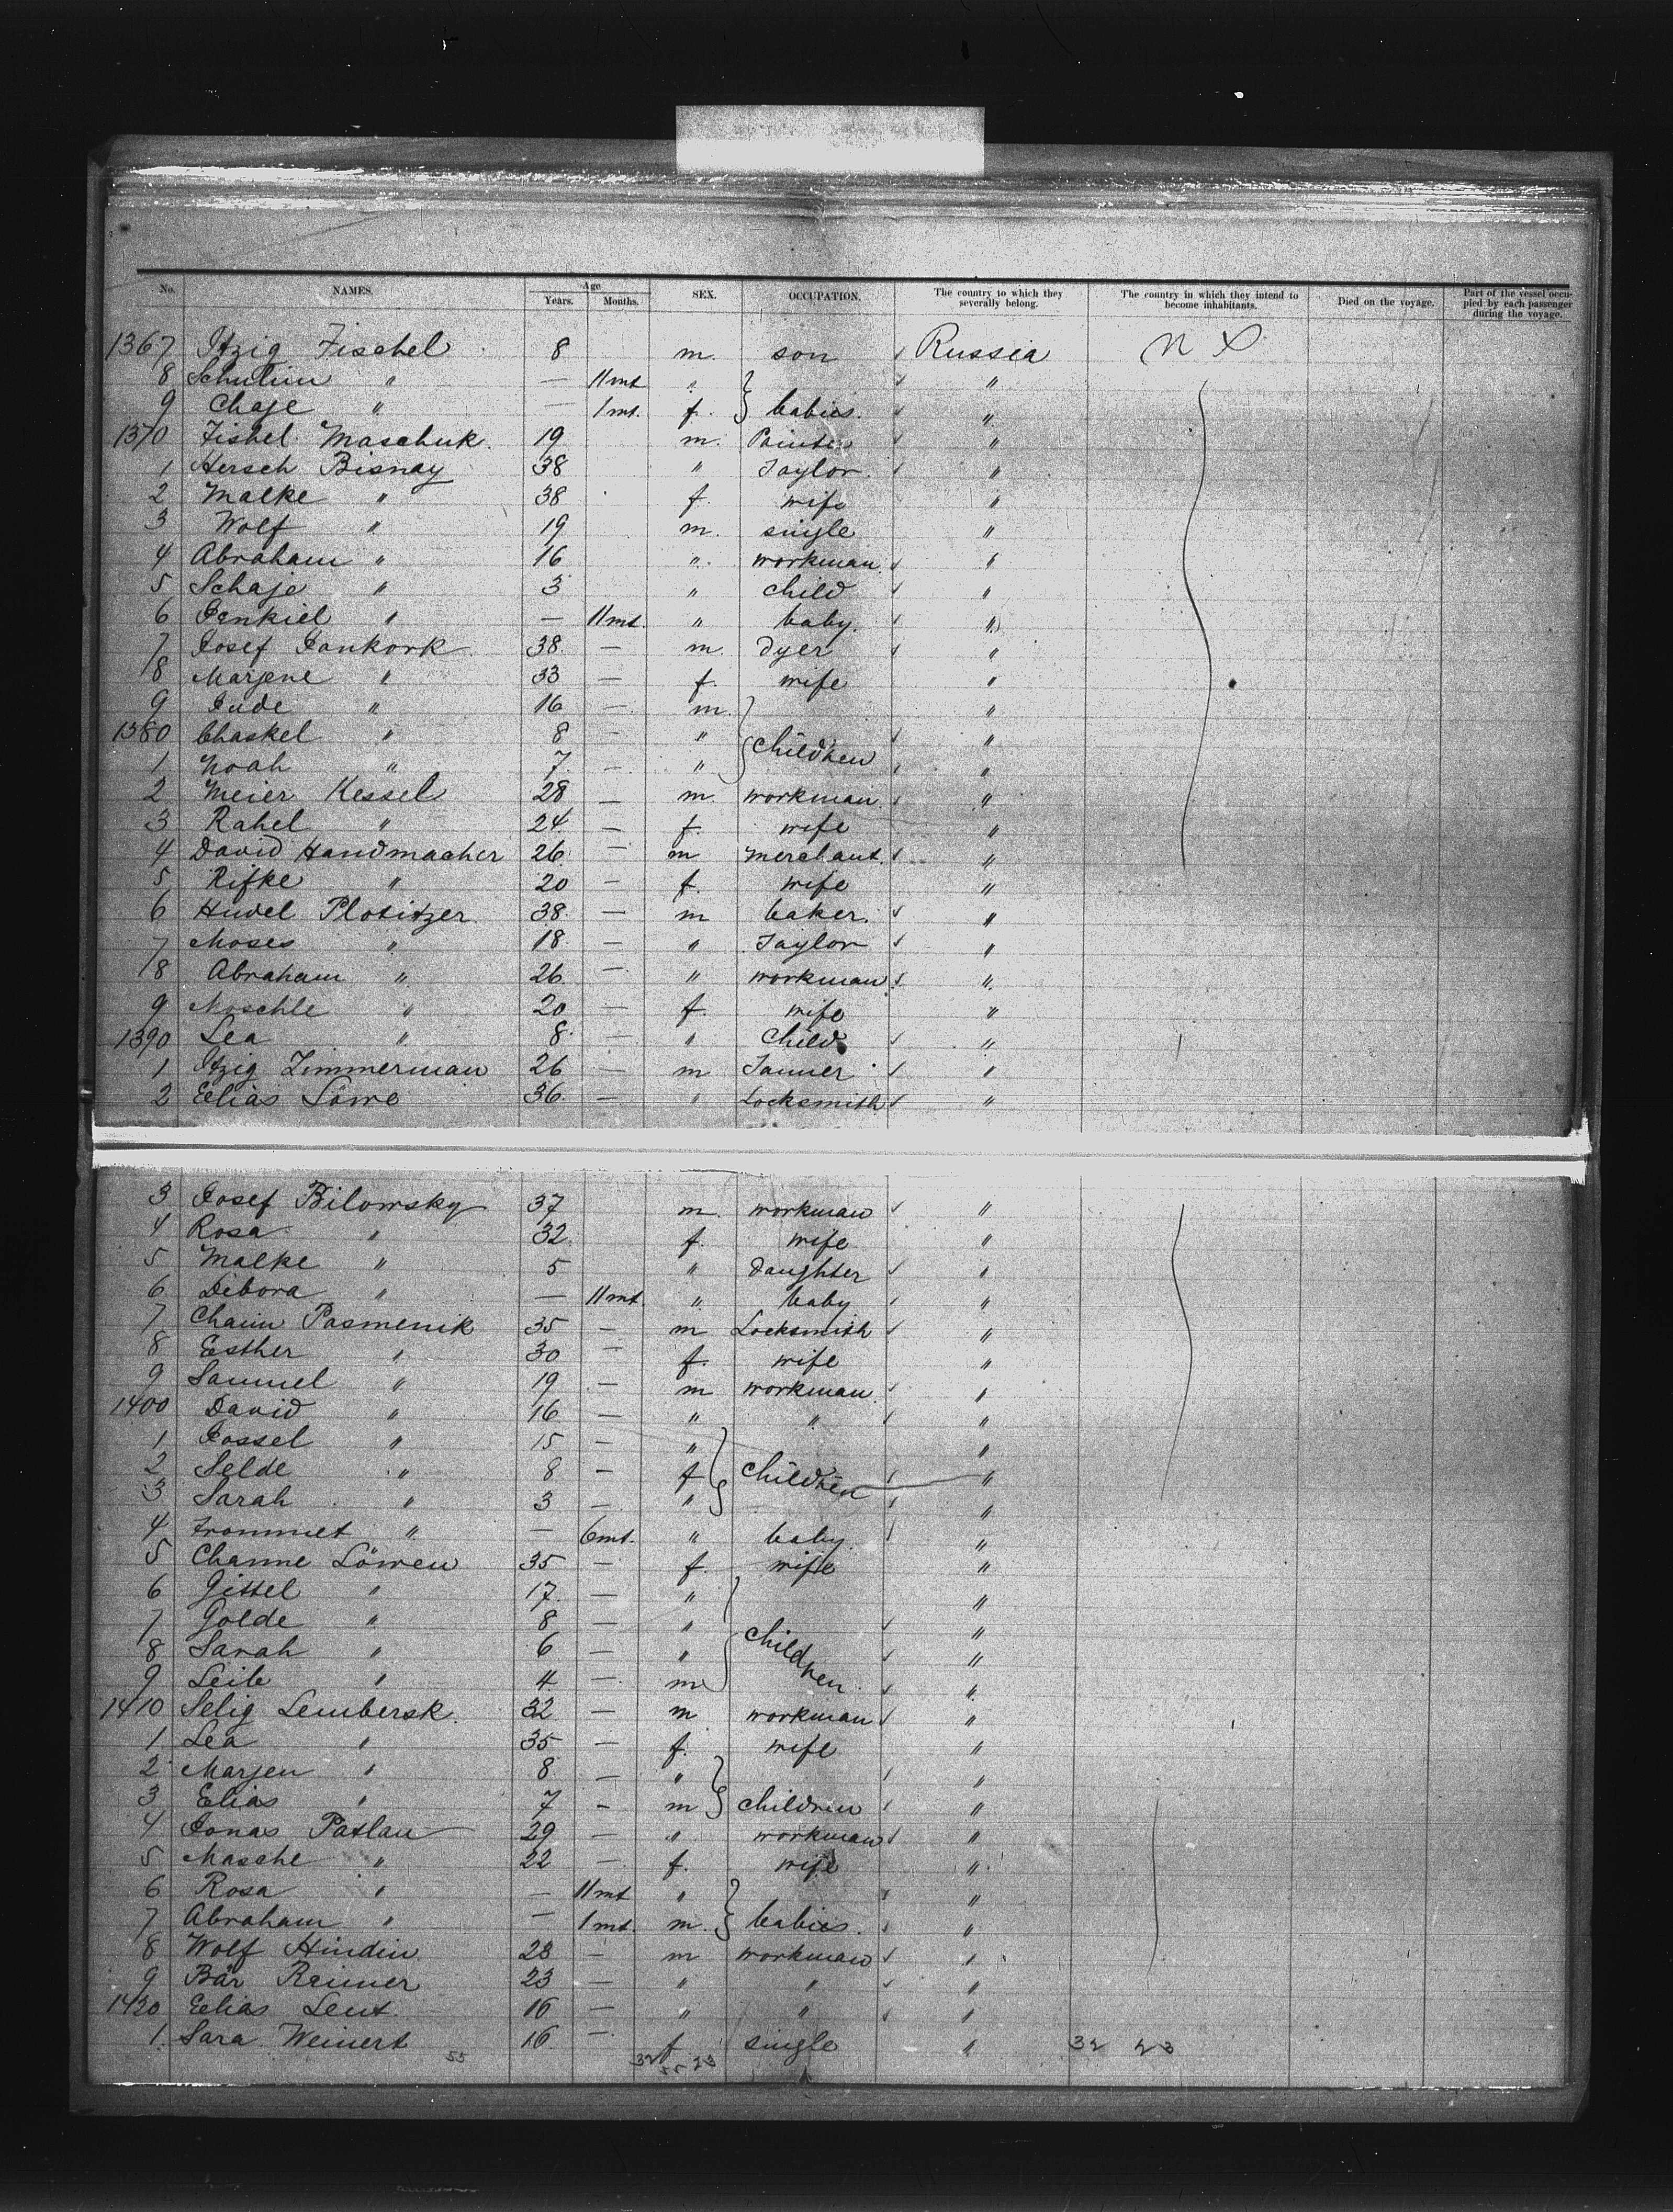 No. NAMES. Age Years. Months. SEX. OCCUPATION. The country to which they severally belong. The country in which they intend to become inhabitants. Died on the voyage. Part of the vessel occupied by each passenger during the voyage.
1367 Itzig Fischel 8 m. son Russia
8 Schulim " — 11mt " "
9 Chaje " — 1mt. f. babies. "
1370 Fishel Maschuk. 19 m. Painter "
1 Hersch Bisnay 38 " Taylor "
2 Malke " 38 f. wife "
3 Wolf " 19 m. single "
4 Abraham " 16 " workman "
5 Schaje " 3 " child "
6 Jankiel " — 11mt. " baby. "
7 Josef Jankork 38. — m. dyer "
8 Marjene " 33 — f. wife "
9 Jude " 16 — m. "
1380 Chaskel " 8 — " children "
1 Noah " 7 — " "
2 Meier Kessel 28 — m. workman "
3 Rahel " 24 — f. wife "
4 David Handmacher 26 — m merchant. "
5 Rifke " 20 — f. wife "
6 Hudel Plotitzer 38. — m baker. "
7 Moses " 18 — " Taylor "
8 Abraham " 26 — " workman "
9 Noschle " 20 — f. wife "
1390 Lea " 8 — " Child "
1 Itzig Zimmerman 26 — m Tanner "
2 Elias Löwe 36. — " Locksmith "
3 Josef Bilowsky 37 m. workman "
4 Rosa " 32 f. wife "
5 Malke " 5 " daughter "
6 Debora " — 11mt. " baby "
7 Chaim Pasmenik 35 — m Locksmith "
8 Esther " 30 — f. wife "
9 Samuel " 19 — m workman "
1400 David " 16 — " " "
1 Jossel " 15 — " "
2 Selde " 8 — f children "
3 Sarah " 3 — " "
4 Frommet " — 6mt. " baby. "
5 Channe Löwen 35 — f. wife "
6 Gittel " 17. — " "
7 Golde " 8 — " "
8 Sarah " 6 — " children "
9 Leib " 4 — m "
1410 Selig Lembersk. 32 — m workman "
1 Lea " 35 — f. wife "
2 Marjen " 8 — " "
3 Elias " 7 — m children "
4 Jonas Patlau 29 — " workman "
5 Masche " 22 — f. wife "
6 Rosa " — 11mt " "
7 Abraham " — 1mt. m. babies. "
8 Wolf Hindin 23 — m workman "
9 Bär Reimer 23 — " " "
1420 Elias Lent. 16 — " " "
1. Sara Weinert 16 — f single " 32 23
55 32 55 23